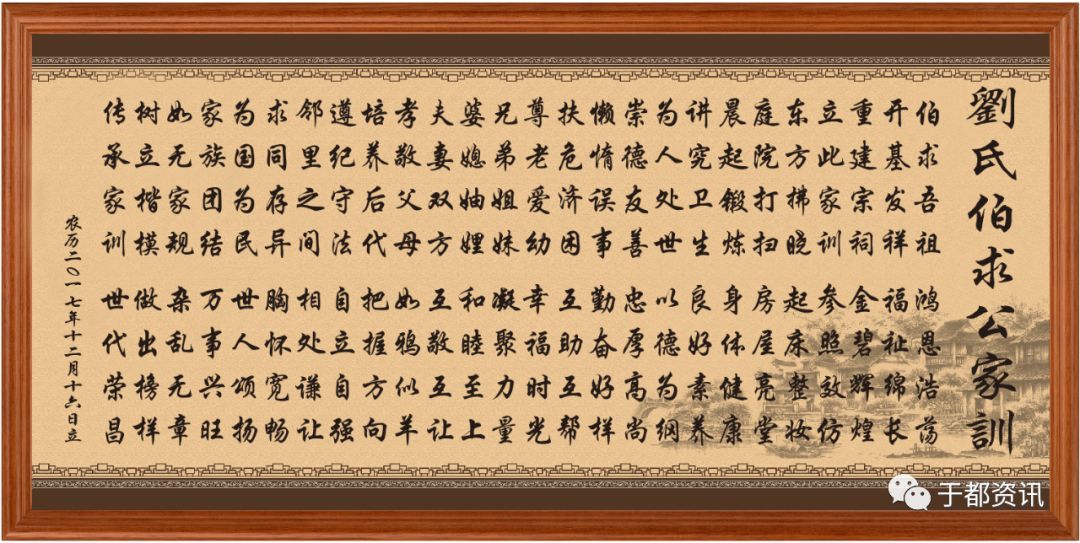 劉氏伯求公家訓
伯求吾祖 鸿恩浩荡
开基发祥 福祉绵长
重建宗祠 金碧辉煌
立此家训 参照效仿
东方拂晓 起床整妆
庭院打扫 房屋亮堂
晨起锻炼 身体健康
讲究卫生 良好素养
为人处世 以德为纲
崇德友善 忠厚高尚
懒惰误事 勤奋好样
扶危济困 互助互帮
尊老爱幼 幸福时光
兄弟姐妹 凝聚力量
婆媳妯娌 和睦至上
夫妻双方 互敬互让
孝敬父母 如鸦似羊
培养后代 把握方向
遵纪守法 自立自强
邻里之间 相处谦让
求同存异 胸怀宽畅
为国为民 世人颂扬
家族团结 万事兴旺
如无家规 杂乱无章
树立楷模 做出榜样
传承家训 世代荣昌
农历二〇一七年十二月十六日立
于都资讯